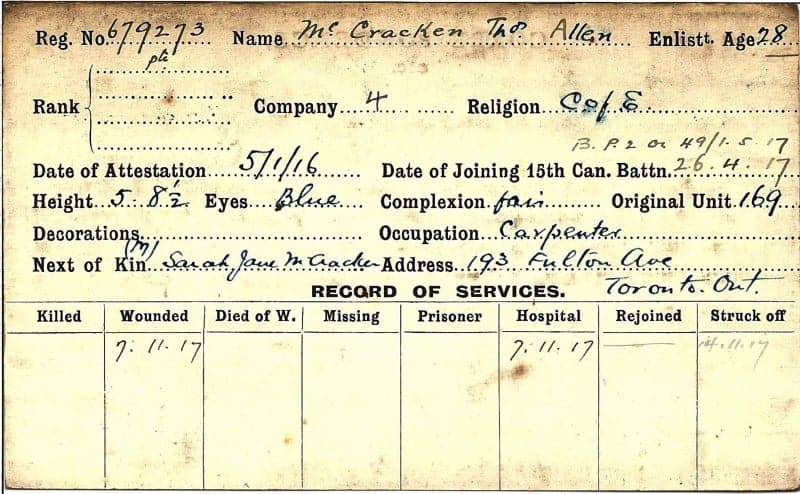 Reg. No. 679273 Name Mc Cracken Thos. Allen Enlistt. Age 28
pte
Rank Company 4 Religion C of E
B. P. 2 Or 49/1.5.17
Date of Attestation 5/1/16 Date of Joining 15th Can. Battn. 26.4.17
Height 5.8½ Eyes Blue Complexion fair Original Unit 169
Decorations Occupation Carpenter
Next of Kin (M) Sarah Jane McCracken Address 193 Fulton Ave
RECORD OF SERVICES. Toronto. Ont.
Killed Wounded Died of W. Missing Prisoner Hospital Rejoined Struck off
7.11.17 7.11.17 14.11.17